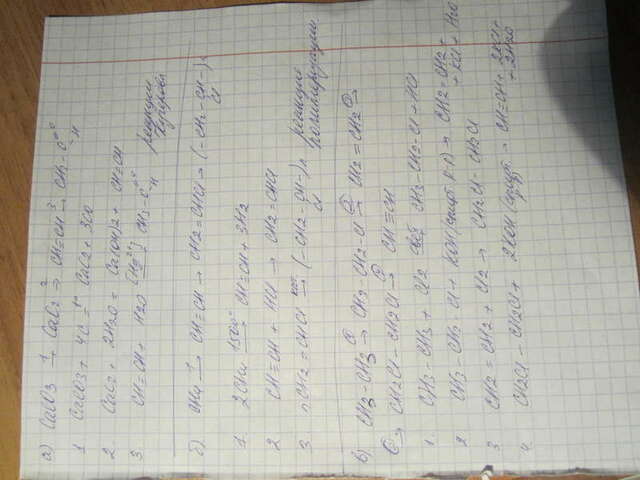 а) CaCO3 1→ CaC2 2→ CH≡CH 3→ CH3-C=O -H
1 CaCO3 + 4C = CaC2 + 3CO
2. CaC2 + 2H2O = Ca(OH)2 + CH≡CH
3. CH≡CH + H2O Hg2+ CH3-C=O -H реакция Кучерова
б) CH4 1→ CH≡CH → CH2=CHCl → (-CH2-CH-)n Cl
1. 2CH4 1500° CH≡CH + 3H2
2 CH≡CH + HCl → CH2=CHCl
3 nCH2=CHCl → (-CH2-CH-)n Cl реакция полимеризации
в) CH3-CH3 1→ CH3-CH2-Cl 2→ CH2=CH2 3→
→ CH2Cl-CH2Cl 4→ CH≡CH
1. CH3-CH3 + Cl2 свет CH3-CH2-Cl + HCl
2 CH3-CH2Cl + KOH (спирт. р-р) → CH2=CH2 + KCl + H2O
3 CH2=CH2 + Cl2 → CH2Cl-CH2Cl
4. CH2Cl-CH2Cl + 2KOH (спирт → CH≡CH + 2KCl + 2H2O